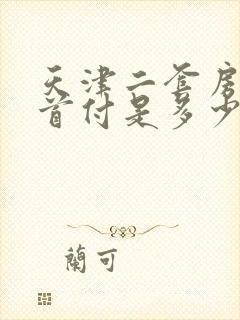 天津二套房
首付是多少
蘭可